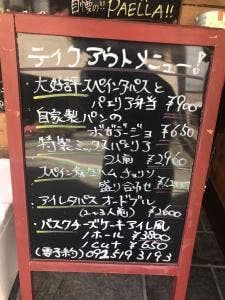 自家製の!! PAELLA!!
テイクアウトメニュー!
・大好評 スペインタパスと
パエリア弁当 ¥900
・自家製パンの
ボカディージョ ¥650
・特製ミックスパエリア
2人前 ¥2960
・スペイン産生ハム チョリソ
盛り合わせ
・アイレタパス オードブル
(2〜3人前) ¥2600
・バスクチーズケーキアイレ風
1ホール ¥3800
1cut ¥650
(要予約) 092 519 3193